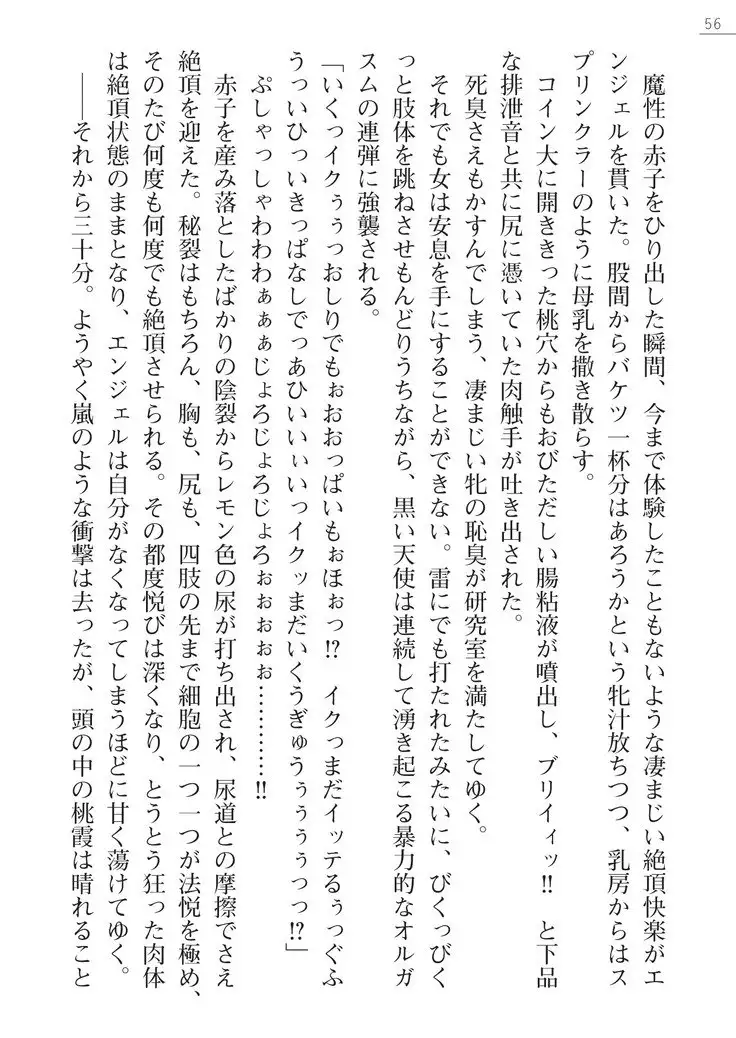 56
魔性の赤子をひり出した瞬間、今まで体験したこともないような凄まじい絶頂快楽がエ
ンジェルを貫いた。股間からバケツ一杯分はあろうかという牝汁放ちつつ、乳房からはス
プリンクラーのように母乳を撒き散らす。
コイン大に開ききった桃穴からもおびただしい腸粘液が噴出し、ブリイィッ!! と下品
な排泄音と共に尻に憑いていた肉触手が吐き出された。
死臭さえもかすんでしまう、凄まじい牝の恥臭が研究室を満たしてゆく。
それでも女は安息を手にすることができない。雷にでも打たれたみたいに、びくっびく
っと肢体を跳ねさせもんどりうちながら、黒い天使は連続して湧き起こる暴力的なオルガ
スムの連弾に強襲される。
「いくっイクぅぅっおしりでもぉおおっぱいもぉほぉっ!? イクっまだイッテるぅっぐふ
うっいひっいきっぱなしでっあひいいぃいっイクッまだいくうぎゅうぅぅぅぅっっ!?」
ぷしゃっしゃわわわぁぁぁじょろじょろじょろぉぉぉぉぉ…………!!
赤子を産み落としたばかりの陰裂からレモン色の尿が打ち出され、尿道との摩擦でさえ
絶頂を迎えた。秘裂はもちろん、胸も、尻も、四肢の先まで細胞の一つ一つが法悦を極め、
そのたび何度も何度でも絶頂させられる。その都度悦びは深くなり、とうとう狂った肉体
は絶頂状態のままとなり、エンジェルは自分がなくなってしまうほどに甘く蕩けてゆく。
――それから三十分。ようやく嵐のような衝撃は去ったが、頭の中の桃霞は晴れること